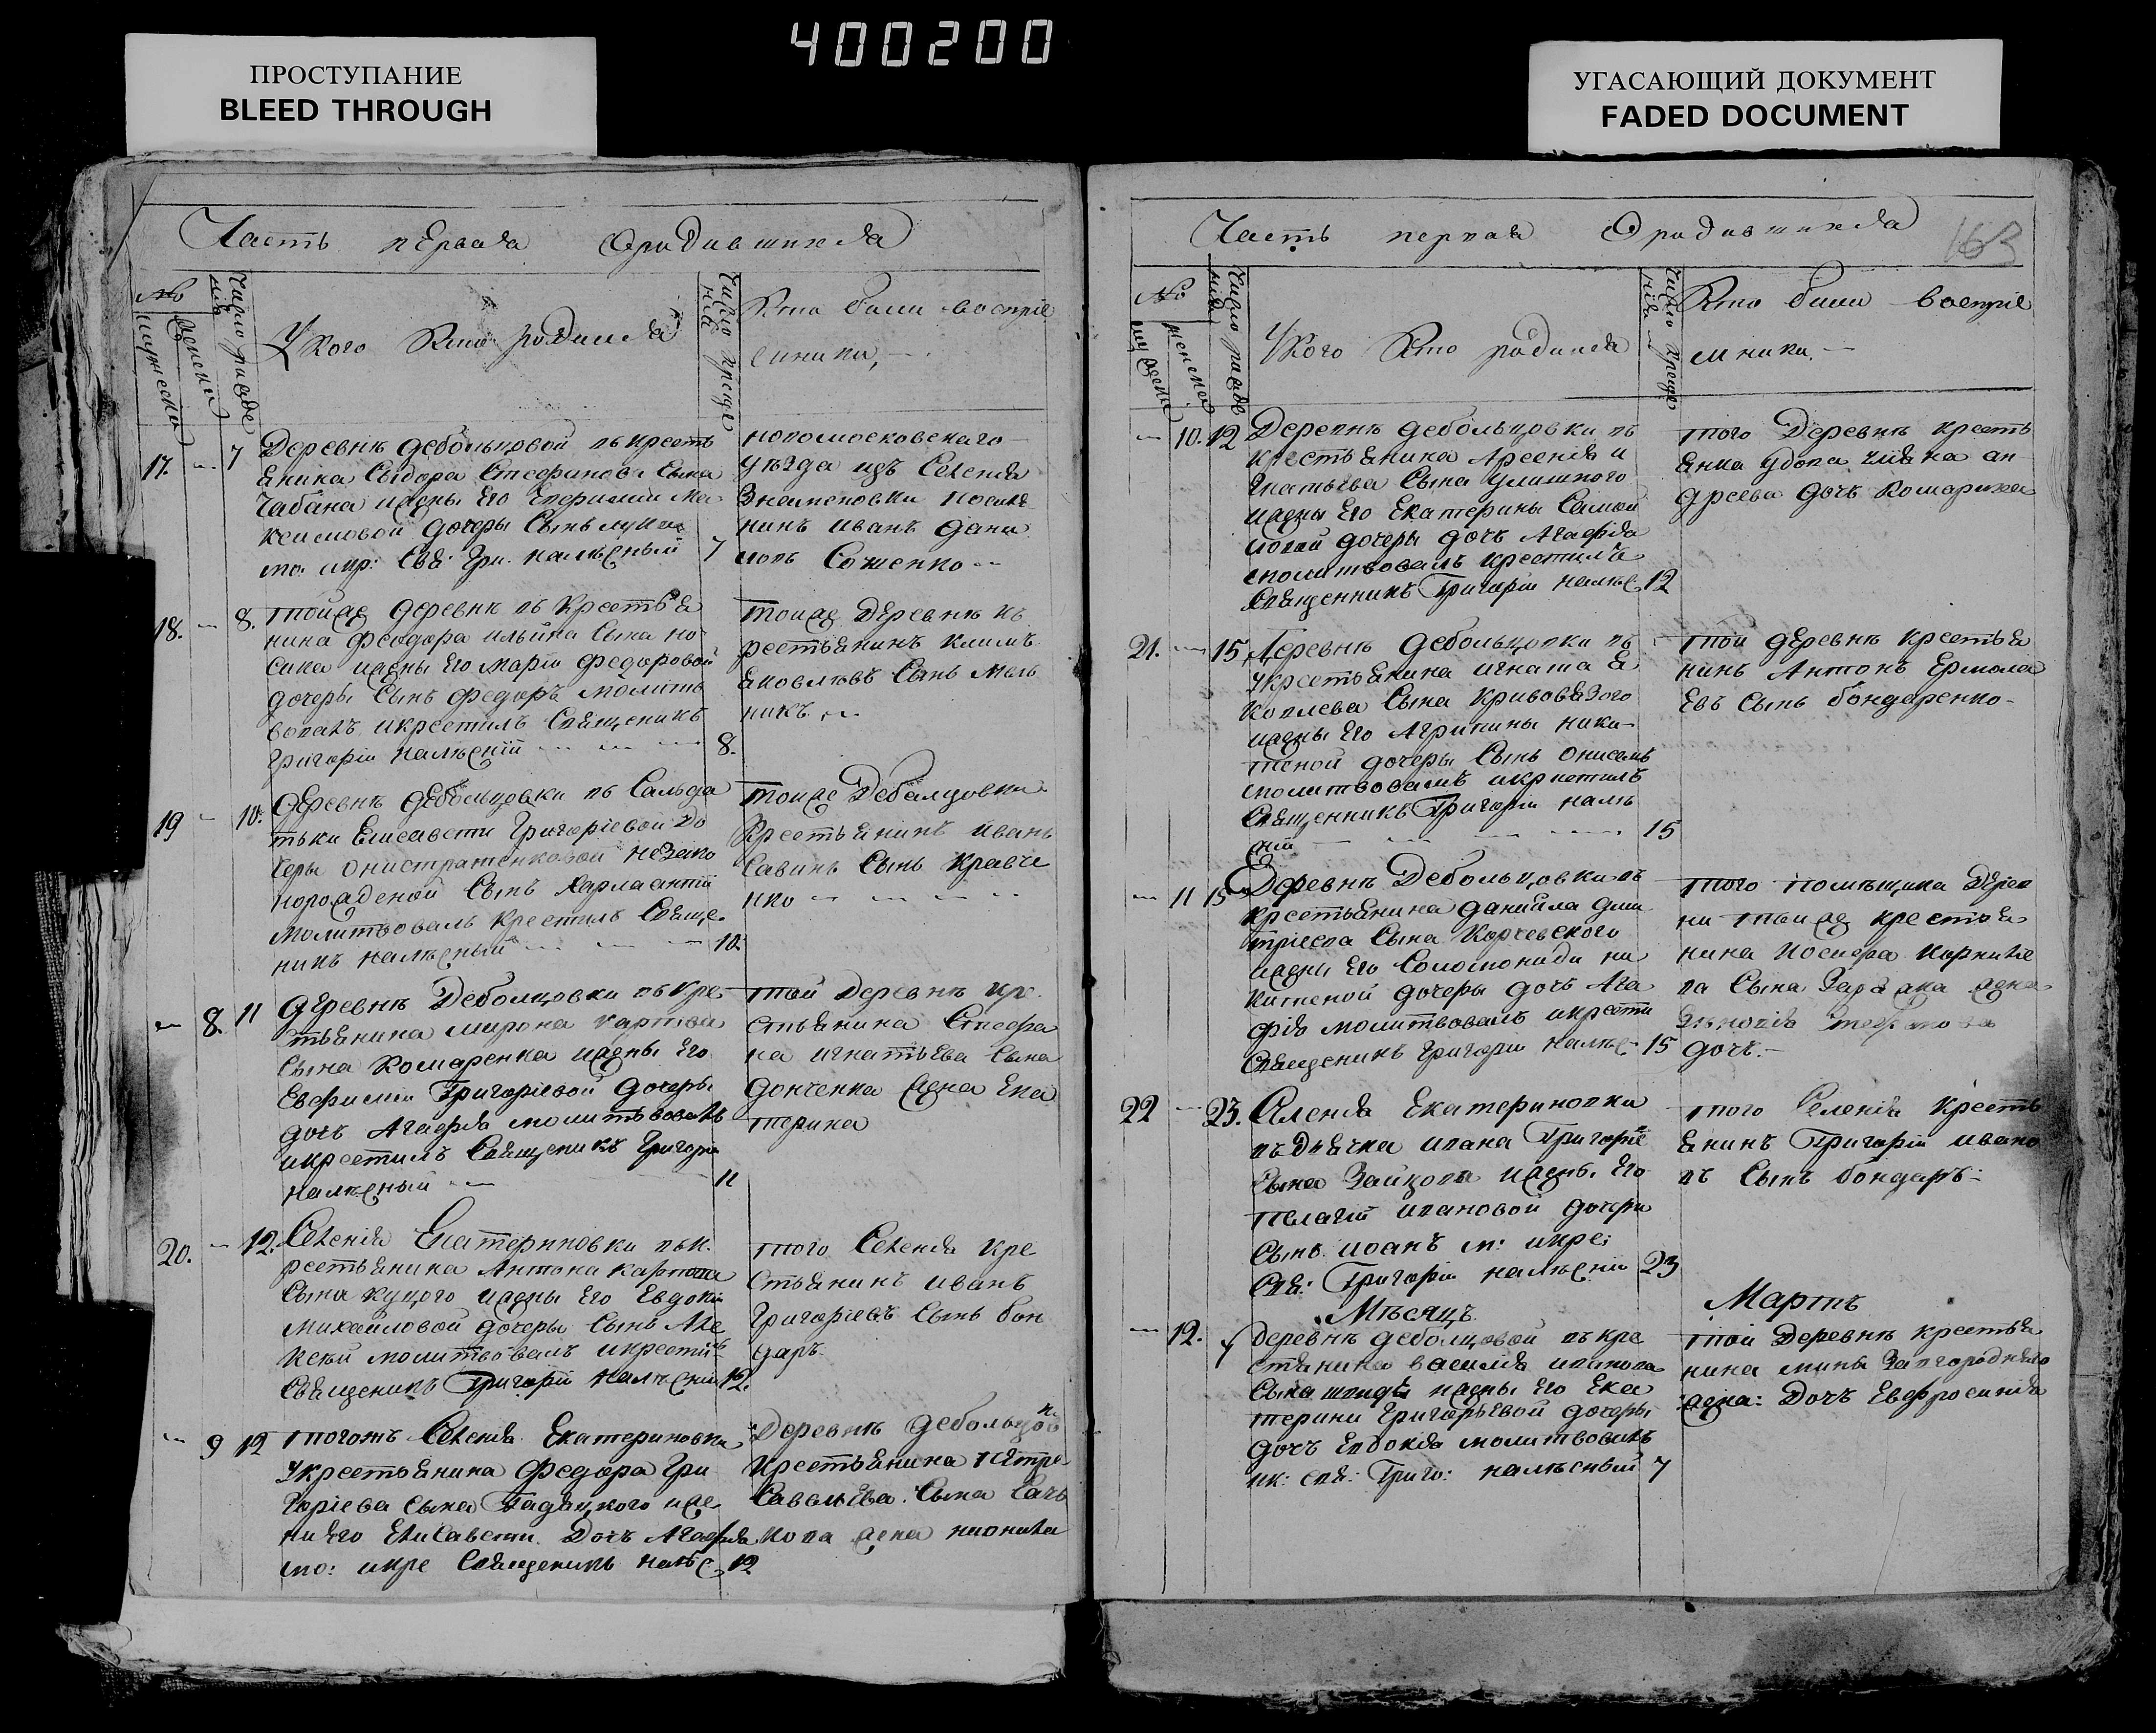 400200
ПРОСТУПАНИЕ
BLEED THROUGH
УГАСАЮЩИЙ ДОКУМЕНТ
FADED DOCUMENT
Часть первая Ородившихся
№
мужески
женски
Число рожде
нія
У кого Кто родился
Число креще
ній
Кто были воспріе
мники,
17. 7
Деревнѣ дебольцовой въ крестъ
яника Сыдора Стефанова Сына
Чабана жены Его Ефиміи Ма
ксимовой дочеры Сынъ
мо: икр: Свя: Гри. налѣсный 7
новомосковскаго
уѣзда изъ Селенія
Знаменовки посиле
нинъ иванъ дани
ловъ Соженко
18. 8.
тойже деревнѣ въ Крестья
нина феодора ильина Сына но
сика жены Его Маріи федоровой
дочеры Сынъ федоръ молить
вовалъ икрестилъ Священикъ
Григорій налѣсній 8.
тоиже Деревнѣ кь
рестьянинъ климъ
яковлювъ Сынъ Мель
никъ
19 10.
Деревнѣ дебольцовки въ Сальда
тьки Елисавети Григоріевой до
черы онистратенковой незако
норожденой Сынъ Харлаампій
Молитвовалъ Крестилъ Свяще
никъ налѣсный 10.
тоиже Дебалцовки
Крестьянинъ иванъ
Савинъ Сынъ Кравче
нко
8. 11
Деревнѣ Деболцовки въ кре
тьянина мирона карпова
Сына Комаренка жены Его
Евфиміи Григоріевой дочеры
дочъ Агафія молитвовалъ
икрестилъ Священикъ Григорій
налѣсный 11
той деревнѣ кре
стьянина Стефа
на игнатьева Сына
донченка жена Ека
терина
20. 12.
Селенія Екатериновки въ к
рестьянина Антона карпова
Сына куцого жены Его Евдокіи
Михайловой дочеры Сынъ Але
ксѣй молитвовалъ икрестилъ
Священикъ Григорій налѣсній 12.
того Селенія кре
стьянинъ иванъ
Григоріевъ Сынъ бон
даръ
9 12
тогожъ Селенія Екатериновки
укрестьянина Федора Гри
горіева Сына Гадяцкого же
ни Его Елисавети Дочъ Агафія
мо: икре Священикъ налѣс 12
Деревнѣ дебольцов
крестьянина петра
Савельева Сына
кова жена
163
Часть первая Ородившихся
№
женски
Число рожде
нія
У кого Кто родился
Число креще
нія
Кто были воспріе
мники.
10. 12
Деревнѣ дебольцовки въ
крестьянина Арсенія и
гнатьева Сына
жены Его Екатерины Самой
ловой дочеры дочъ Агафія
молитвовалъ крестилъ
Священникъ Григорій налѣс 12
того Деревнѣ кресть
янка удова ан
дреева дочъ Комариха
21. 15
Деревнѣ дебольцовки въ
укрестьянина игната я
ковлева Сына Кривовязого
жены Его Агрипины ники
теной дочеры Сынъ онисимъ
молитвовалъ икрестилъ
Священникъ Григорій налѣ
сній 15
той деревнѣ крестья
нинъ Антонъ Ермола
Евъ Сынъ бондаренко
11 15
Деревнѣ Дебольцовки въ
крестьянина даніила дми
тріева Сына Корчевского
жены Его Соломониди ни
китеной дочеры дочъ Ага
фія молитвовалъ икрести
Священикъ Григори налѣс 15
того помѣщика Дерев
ни тоиже крестья
нина иосифа корніе
ва Сына жена
Зѣновія
дочъ.
22 23.
Селенія Екатериновки
въ Дьячка ивана Григоріе
Сына Зайцова жены Его
Пелагіи ивановой дочери
Сынъ иоанъ м: икре:
Свя: Григорій налѣсній 23
того Селенія кресть
янинъ Григорій ивано
въ Сынъ бондаръ
Мѣсяцъ Мартъ
12. 7
деревнѣ деболцовой въ кре
стянина василія иванова
Сына жены Его Ека
терини Григорьевой дочеры
дочъ Евдокія молитвовалъ
ик: свя: Григо: налѣсный 7
той Деревнѣ крестья
нина мины Загородняго
жена: Дочъ Евфросинія